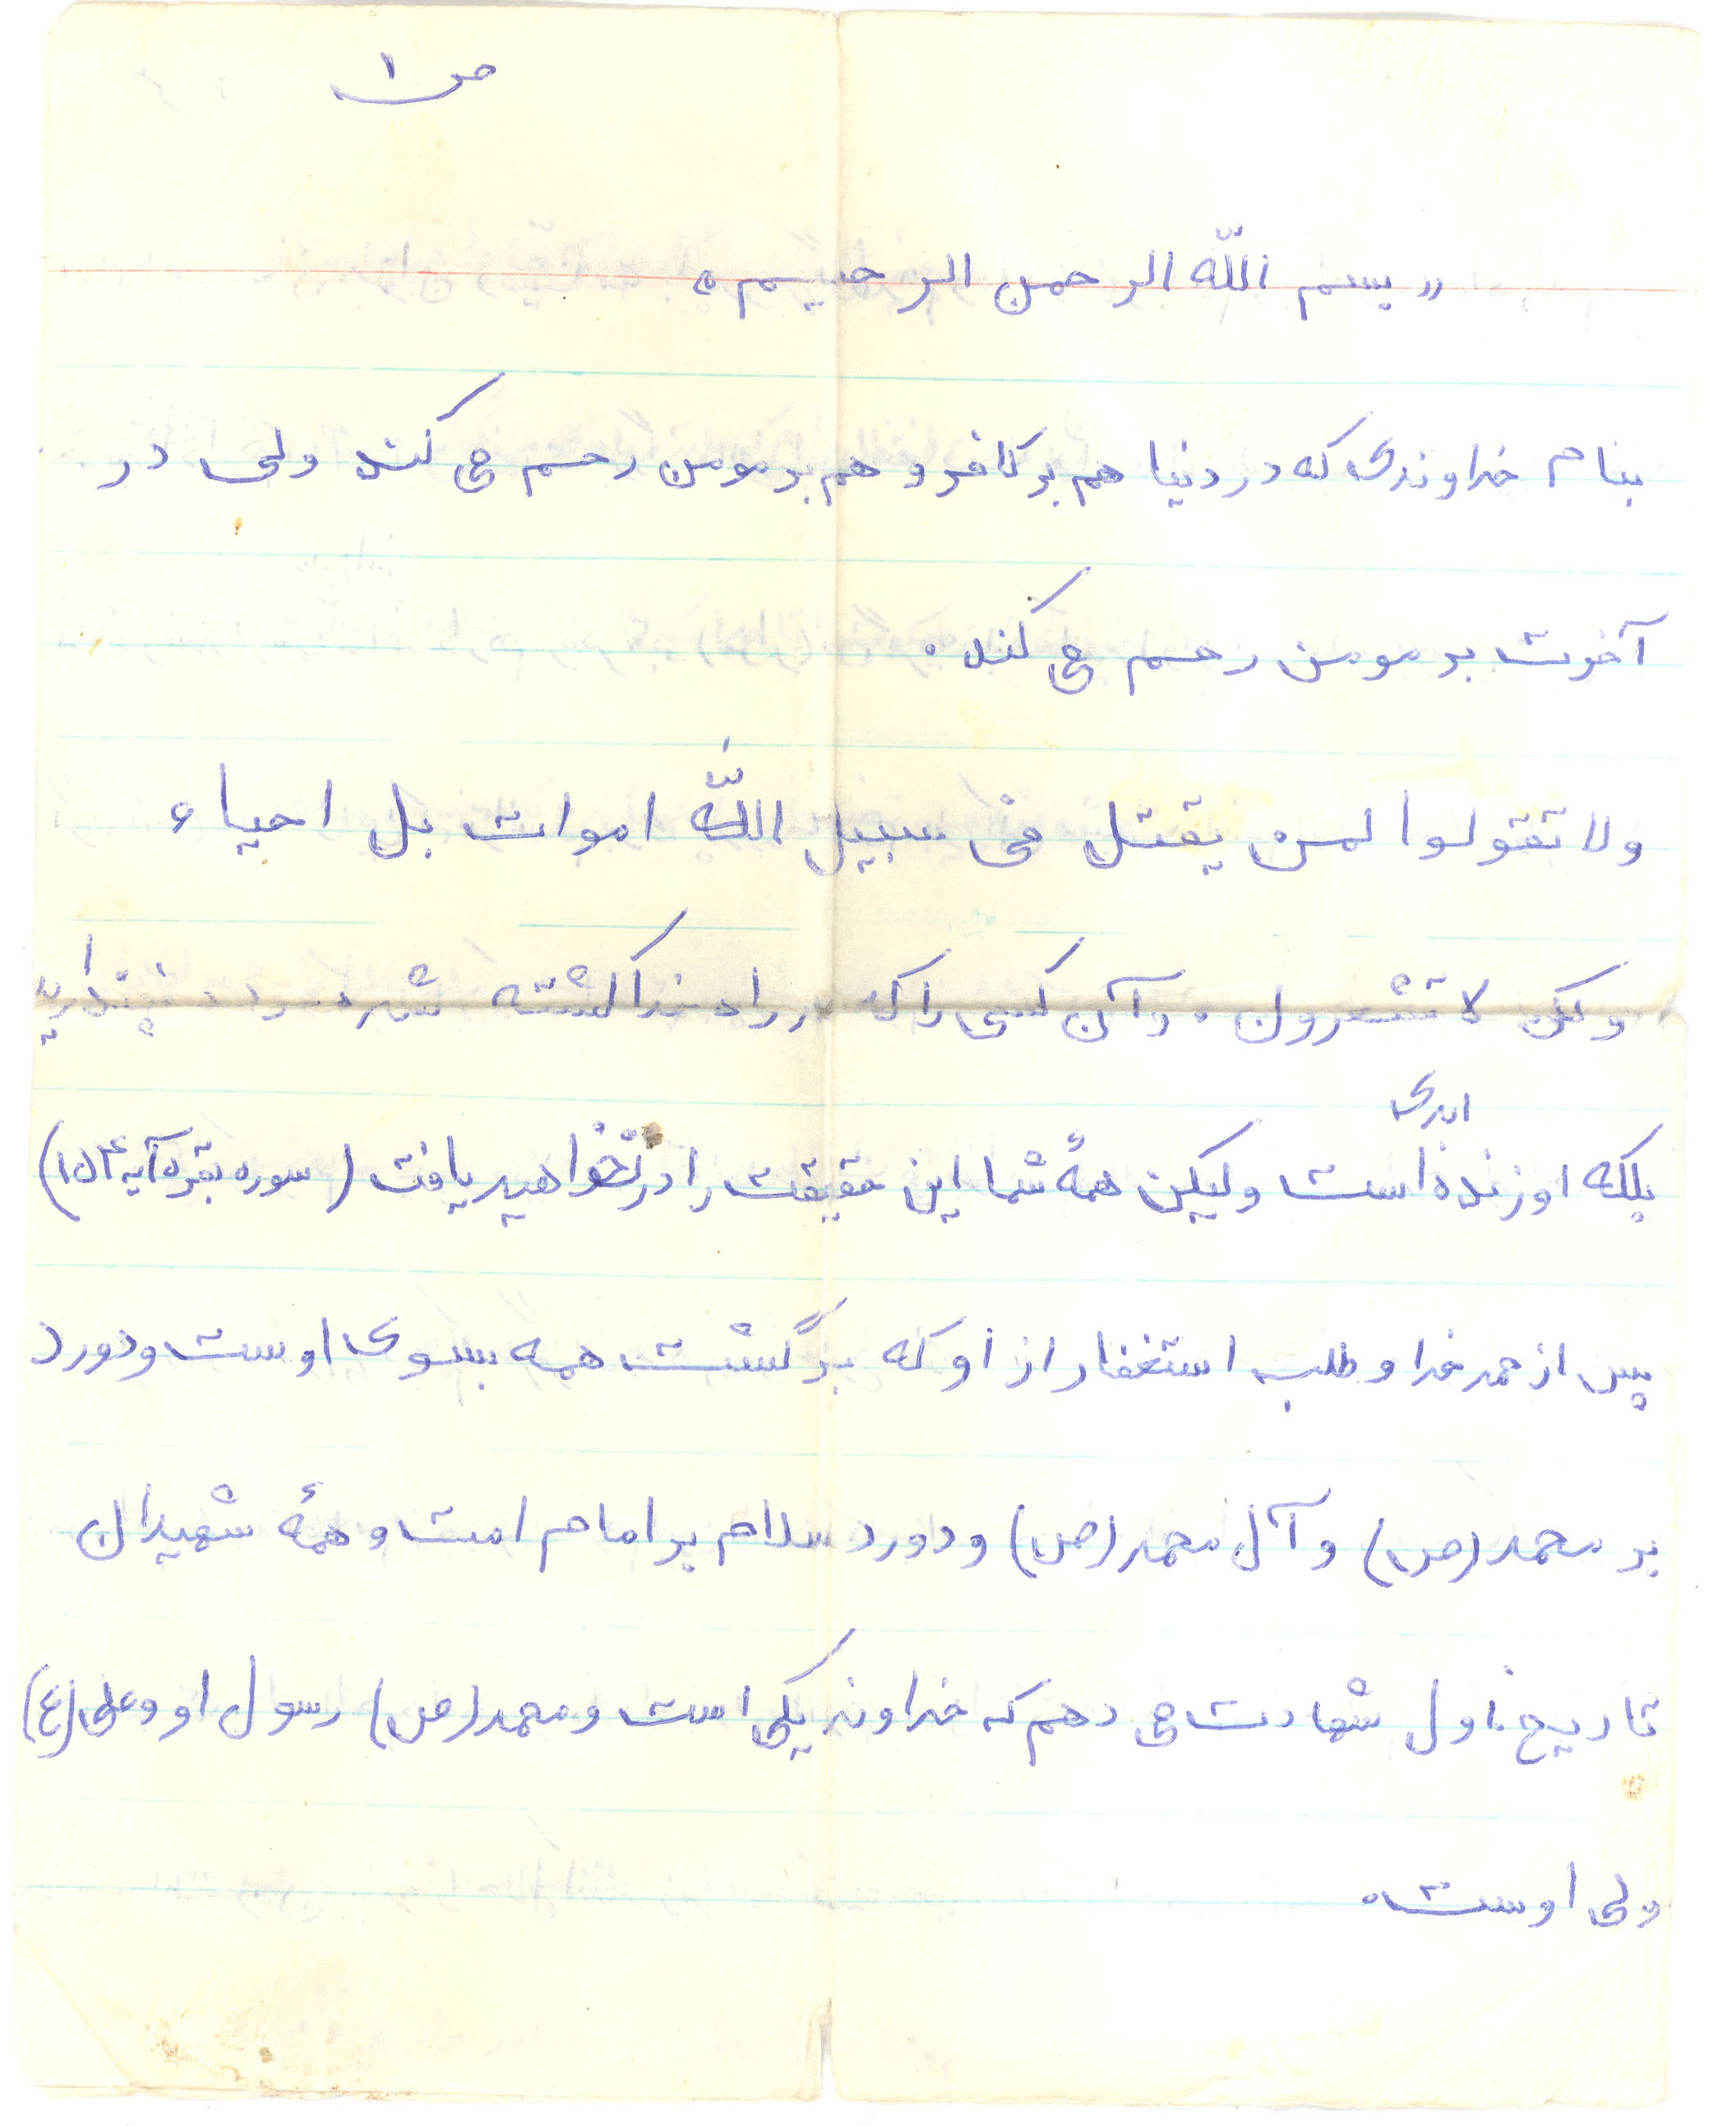 ص ۱
«بسم اللّه الرحمن الرحیم»
بنام خداوندی که در دنیا هم بر کافر و هم بر مومن رحم می کند ولی در
آخرت بر مومن رحم می کند.
ولا تقولوا لمن یقتل فی سبیل اللّه اموات بل احیاء
ولکن لا تشعرون. وآن کسی را که در راه خدا کشته شد مرده نپندارید
ابدی
بلکه او زنده است ولیکن همهٔ شما این حقیقت را درنخواهید یافت (سوره بقره آیه ۱۵۴)
پس از حمد خدا و طلب استغفار از او که برگشت همه بسوی اوست و دورد
بر محمد (ص) و آل محمد (ص) و دورد سلام بر امام امت و همهٔ شهیدان
تاریخ. اول شهادت می دهم که خداوند یکی است و محمد (ص) رسول او و علی (ع)
ولی اوست.